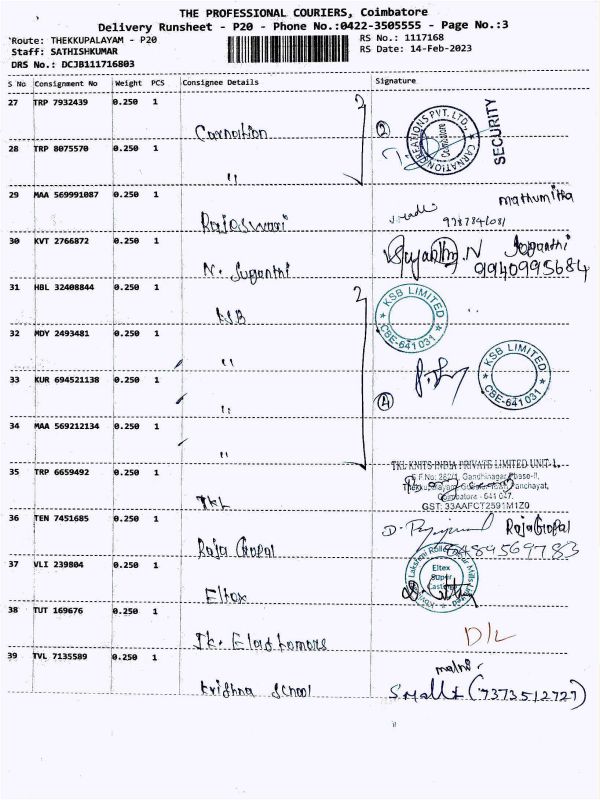 THE PROFESSIONAL COURIERS, Coimbatore
Delivery Runsheet - P20 - Phone No.:0422-3505555 - Page No.:3
Route: THEKKUPALAYAM - P20
RS No.: 1117168
Staff: SATHISHKUMAR
RS Date: 14-Feb-2023
DRS No.: DCJB111716803
S No Consignment No Weight PCS Consignee Details Signature
27 TRP 7932439 0.250 1 Carnation
2 CARNATION CREATIONS PVT. LTD., Coimbatore SECURITY
28 TRP 8075570 0.250 1 "
29 MAA 569991087 0.250 1 Rajeswari mathumitha
30 KVT 2766872 0.250 1 N. Suganthi
9940995684
31 HBL 32408844 0.250 1 KSB
KSB LIMITED CBE-641 031
32 MDY 2493481 0.250 1 "
KSB LIMITED CBE-641 031
33 KUR 694521138 0.250 1 "
4
34 MAA 569212134 0.250 1 "
35 TRP 6659492 0.250 1 TKL
TKL KNITS INDIA PRIVATE LIMITED UNIT-1,
Coimbatore - 641 047.
GST: 33AAFCT2591M1Z0
36 TEN 7451685 0.250 1 Raja Gopal
RajaGopal
37 VLI 239804 0.250 1 Eltex
Eltex Super
38 TUT 169676 0.250 1 Tk. Elastomers
D/L
39 TVL 7135589 0.250 1 Krishna School
(7373512727)